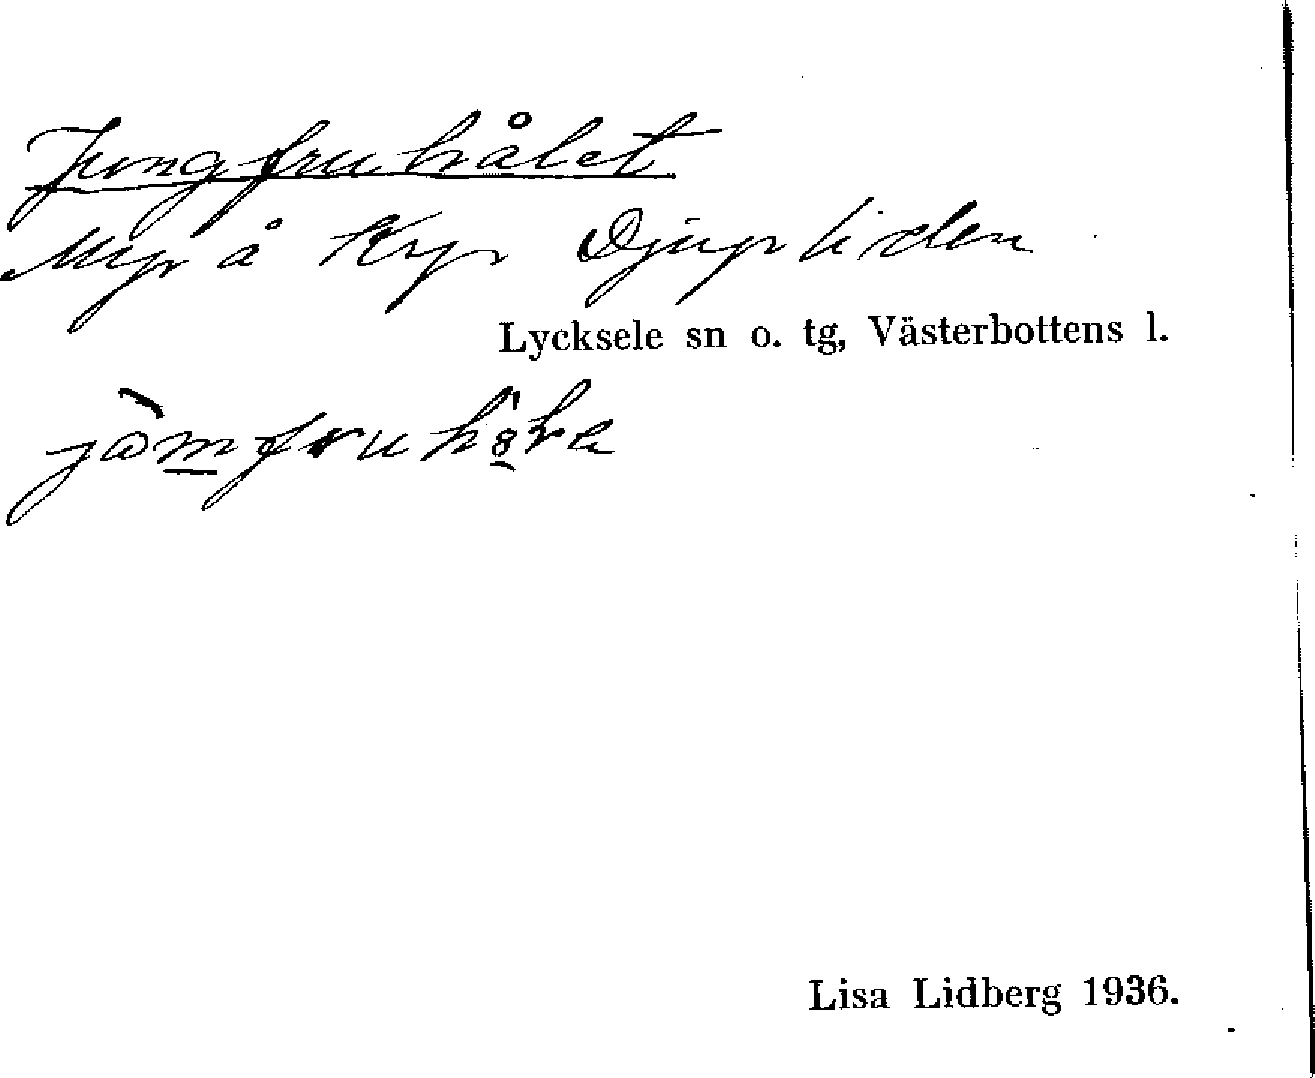 Jungfruhålet
Myr å Kry Djupliden
Lycksele sn o. tg, Västerbottens l.
Lisa Lidberg 1936.